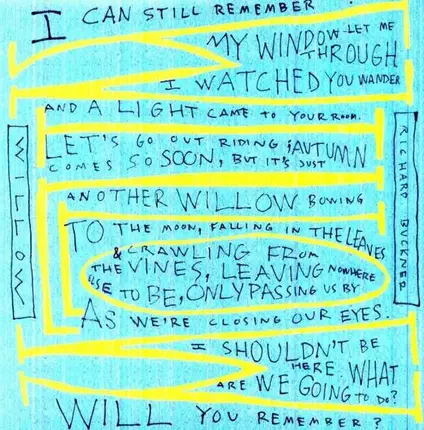 I CAN STILL REMEMBER
MY WINDOW LET ME
THROUGH
I WATCHED YOU WANDER
AND A LIGHT CAME TO YOUR ROOM.
LET'S GO OUT RIDING; AUTUMN
COMES SO SOON, BUT IT'S JUST
ANOTHER WILLOW BOWING
TO THE MOON, FALLING IN THE LEAVES
& CRAWLING FROM
THE VINES, LEAVING NOWHERE
ELSE TO BE, ONLY PASSING US BY
AS WE'RE CLOSING OUR EYES.
I SHOULDN'T BE
HERE. WHAT
ARE WE GOING TO DO?
WILL YOU REMEMBER?
WILLOW
RICHARD BUCKNER